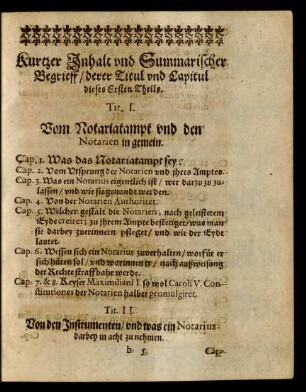 Kurtzer Inhalt vnd Summarischer
Begrieff / derer Titul vnd Capitul
dieses Ersten Theils.
Tit. I.
Vom Notariatampt vnd den
Notarien in gemein.
Cap. 1. Was das Notariatampt sey:
Cap. 2. Vom Vrsprung der Notarien vnd jhres Amptes.
Cap. 3. Was ein Notarius eigentlich ist / wer darzu zu zu-
lassen / vnd wie sie genandt werden.
Cap. 4. Von der Notarien Authoritet.
Cap. 5. Wilcher gestalt die Notarien, nach geleistetem
Eyde creirt: zu jhrem Ampte bestetiget / was man
sie darbey zuerinnern pfleget / vnd wie der Eyde
lautet.
Cap. 6. Wessen sich ein Notarius zuverhalten / wofür er
sich hüten sol / vnd worinnen er / nach außweisung
der Rechte straffbahr werde.
Cap. 7. & 8. Keyser Maximiliani I. so wol Caroli V. Con-
stitutiones der Notarien halber promulgiret.
Tit. II.
Von den Instrumenten / vnd was ein Notarius
darbey in acht zu nehmen.
b 5. Cap.